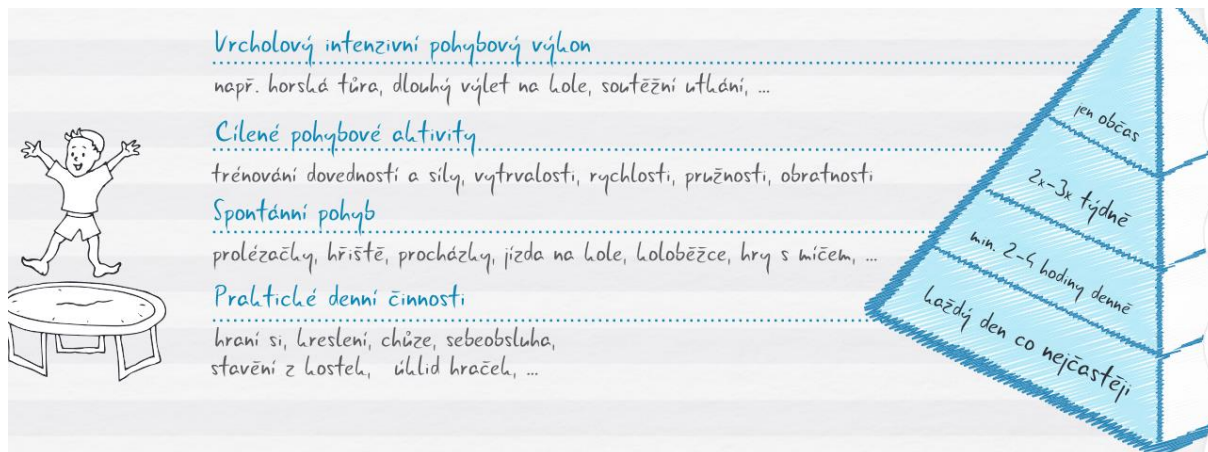 Vrcholový intenzivní pohybový výkon
např. horská túra, dlouhý výlet na kole, soutěžní utkání, ...
jen občas
Cílené pohybové aktivity
trénování dovedností a síly, vytrvalosti, rychlosti, pružnosti, obratnosti
2x-3x týdně
Spontánní pohyb
prolézačky, hřiště, procházky, jízda na kole, koloběžce, hry s míčem, ...
min. 2-4 hodiny denně
Praktické denní činnosti
hraní si, kreslení, chůze, sebeobsluha,
stavění z kostek, úklid hraček, ...
každý den co nejčastěji